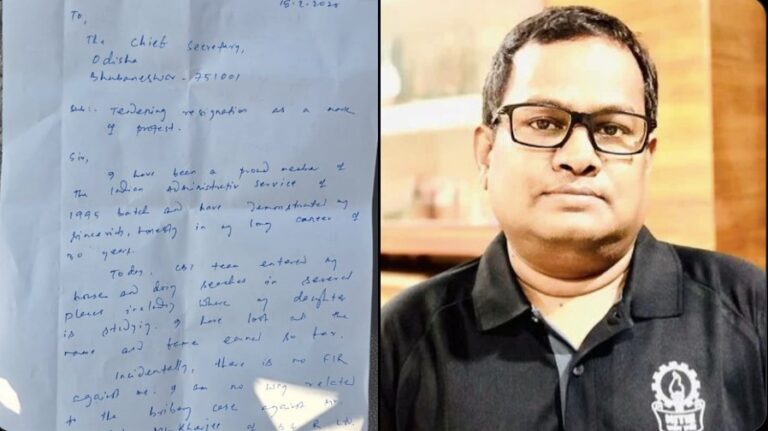 15-2-2025
To,
The Chief Secretary,
Odisha
Bhubaneswar - 751001
Sub:. Tendering resignation as a mark
of protest.
Sir,
I have been a proud member of
the Indian Administrative Service of
1995 batch and have demonstrated my
sincerity, honesty in my long career of
30 years.
Today, CBI team entered my
house and doing searches in several
places including where my daughter
is studying. I have lost all the
name and fame earned so far.
Incidentally, there is no FIR
against me. I am no way related
to the bribery case against
Mukharjee of